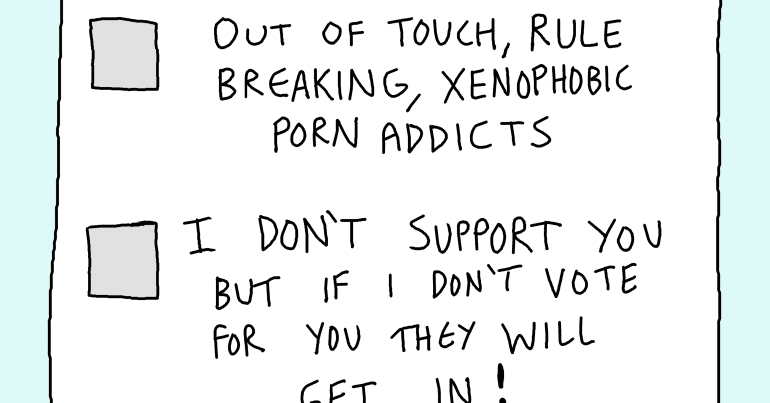 OUT OF TOUCH, RULE
BREAKING, XENOPHOBIC
PORN ADDICTS
I DON'T SUPPORT YOU
BUT IF I DON'T VOTE
FOR YOU THEY WILL
GET IN!